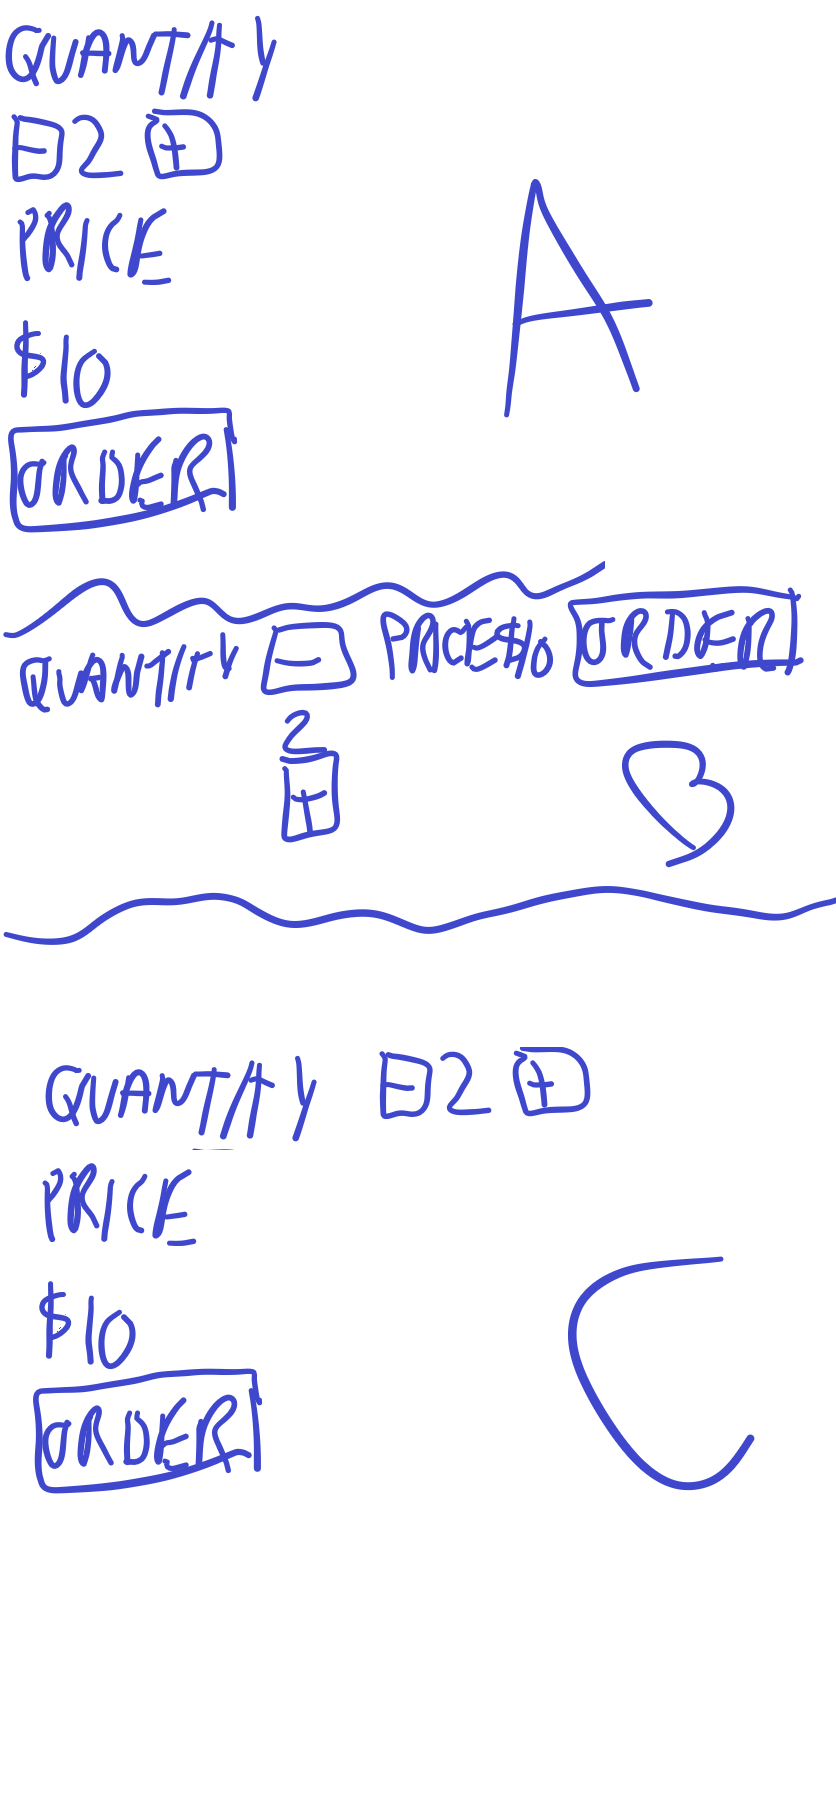 QUANTITY
- 2 +
PRICE
$10
ORDER
A
QUANTITY - PRICE $10 ORDER
2
+
B
QUANTITY - 2 +
PRICE
$10
ORDER
C